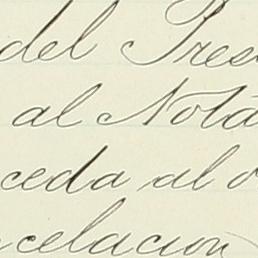 del Pres
al Nota
ceda al o
celacion